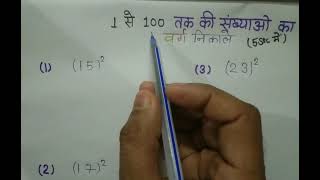 1 से 100 तक की संख्याओ का
वर्ग निकाले (5 Sec में)
(1) (15)²
(3) (23)²
(2) (17)²